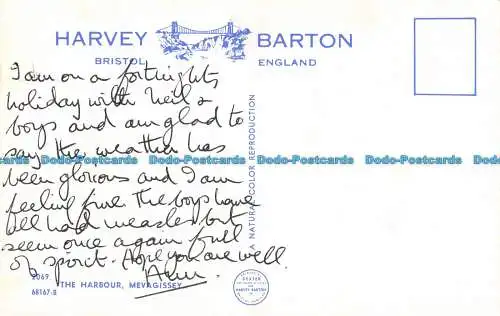 HARVEY BARTON
BRISTOL ENGLAND
I am on a fortnights
holiday with Neil &
boys and am glad to
say the weather has
been glorious and I am
feeling fine the boys have
all had measles but
seem once again full
of spirit. Hope you are well.
Ann.
A NATURAL COLOR REPRODUCTION
Postcards Dodo-Postcards Dodo-Postcards Dodo-Postcards Dodo-Postcards
2069
THE HARBOUR, MEVAGISSEY
68167-B
DEXTER
HARVEY BARTON